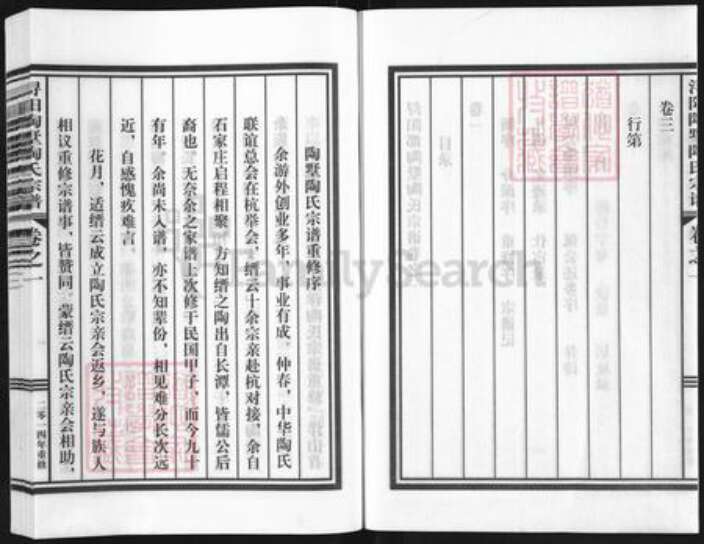 卷三
行第
陶墅陶氏宗谱重修序
余游外创业多年，事业有成，仲春，中华陶氏
联谊总会在杭举会，缙云十余宗亲赴杭对接，余自
石家庄启程相聚，方知缙之陶出自长潭，皆儒公后
裔也，无奈余之家谱上次修于民国甲子，而今九十
有年，余尚未入谱，亦不知辈份，相见难分长次远
近，自感愧疚难言，
花月，适缙云成立陶氏宗亲会返乡，遂与族人
相议重修宗谱事，皆赞同，蒙缙云陶氏宗亲会相助，
浔阳陶墅陶氏宗谱 卷之一
二零一四年重修
FamilySearch